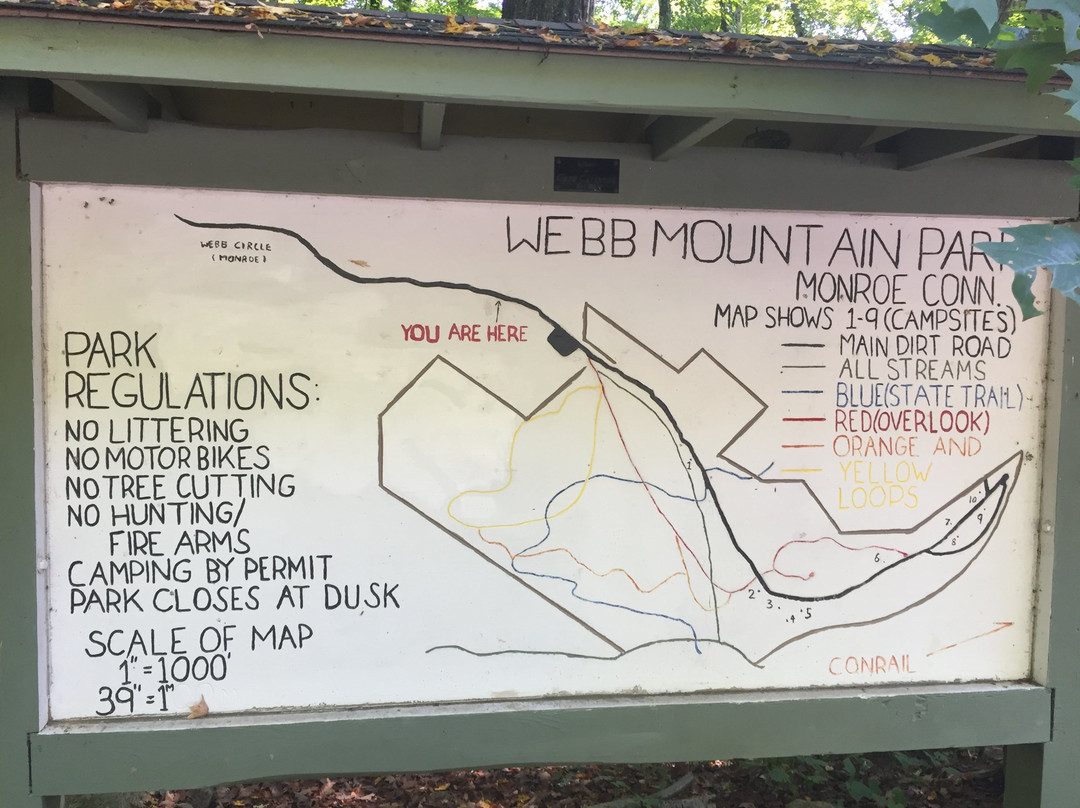 WEBB CIRCLE
(MONROE)
WEBB MOUNTAIN PAR
MONROE CONN.
MAP SHOWS 1-9 (CAMPSITES)
MAIN DIRT ROAD
ALL STREAMS
BLUE (STATE TRAIL)
RED (OVERLOOK)
ORANGE AND
YELLOW
LOOPS
YOU ARE HERE
PARK
REGULATIONS:
NO LITTERING
NO MOTOR BIKES
NO TREE CUTTING
NO HUNTING/
FIRE ARMS
CAMPING BY PERMIT
PARK CLOSES AT DUSK
SCALE OF MAP
1"=1000'
39"=1M
1
2
3
4
5
6
7
8
9
10
CONRAIL